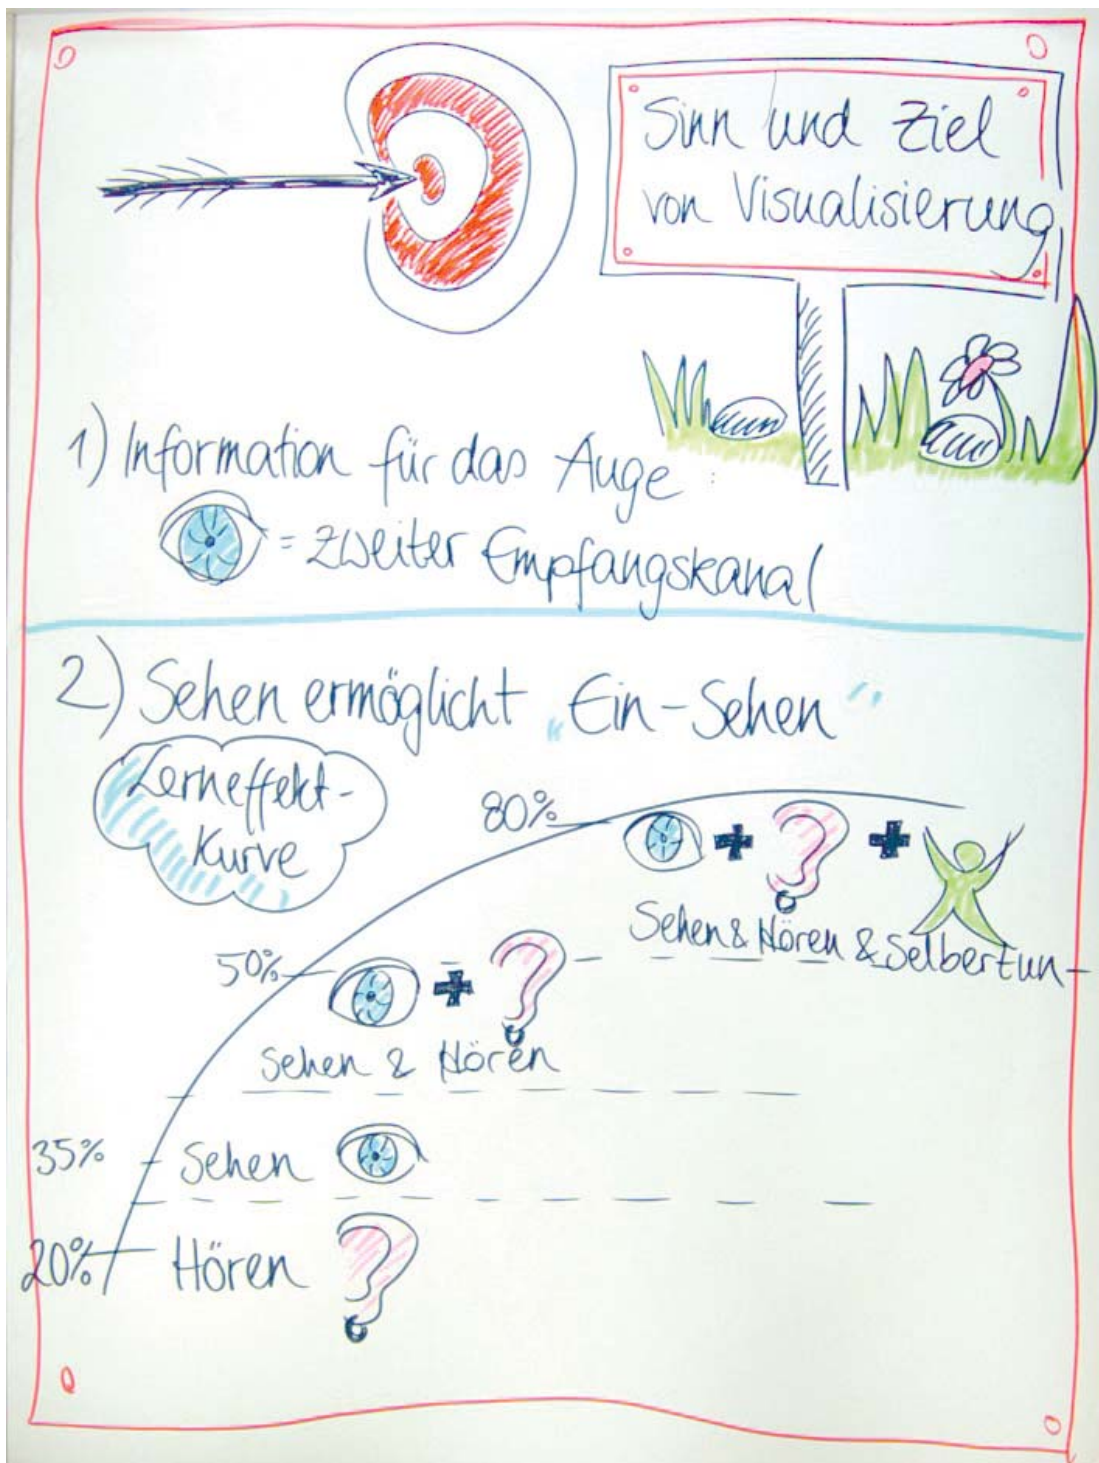 Sinn und Ziel
von Visualisierung
1) Information für das Auge :
= zweiter Empfangskanal
2) Sehen ermöglicht „Ein-Sehen“
Lerneffekt-
Kurve
80%
Sehen & Hören & Selbertun
50%
Sehen & Hören
35% Sehen
20% Hören